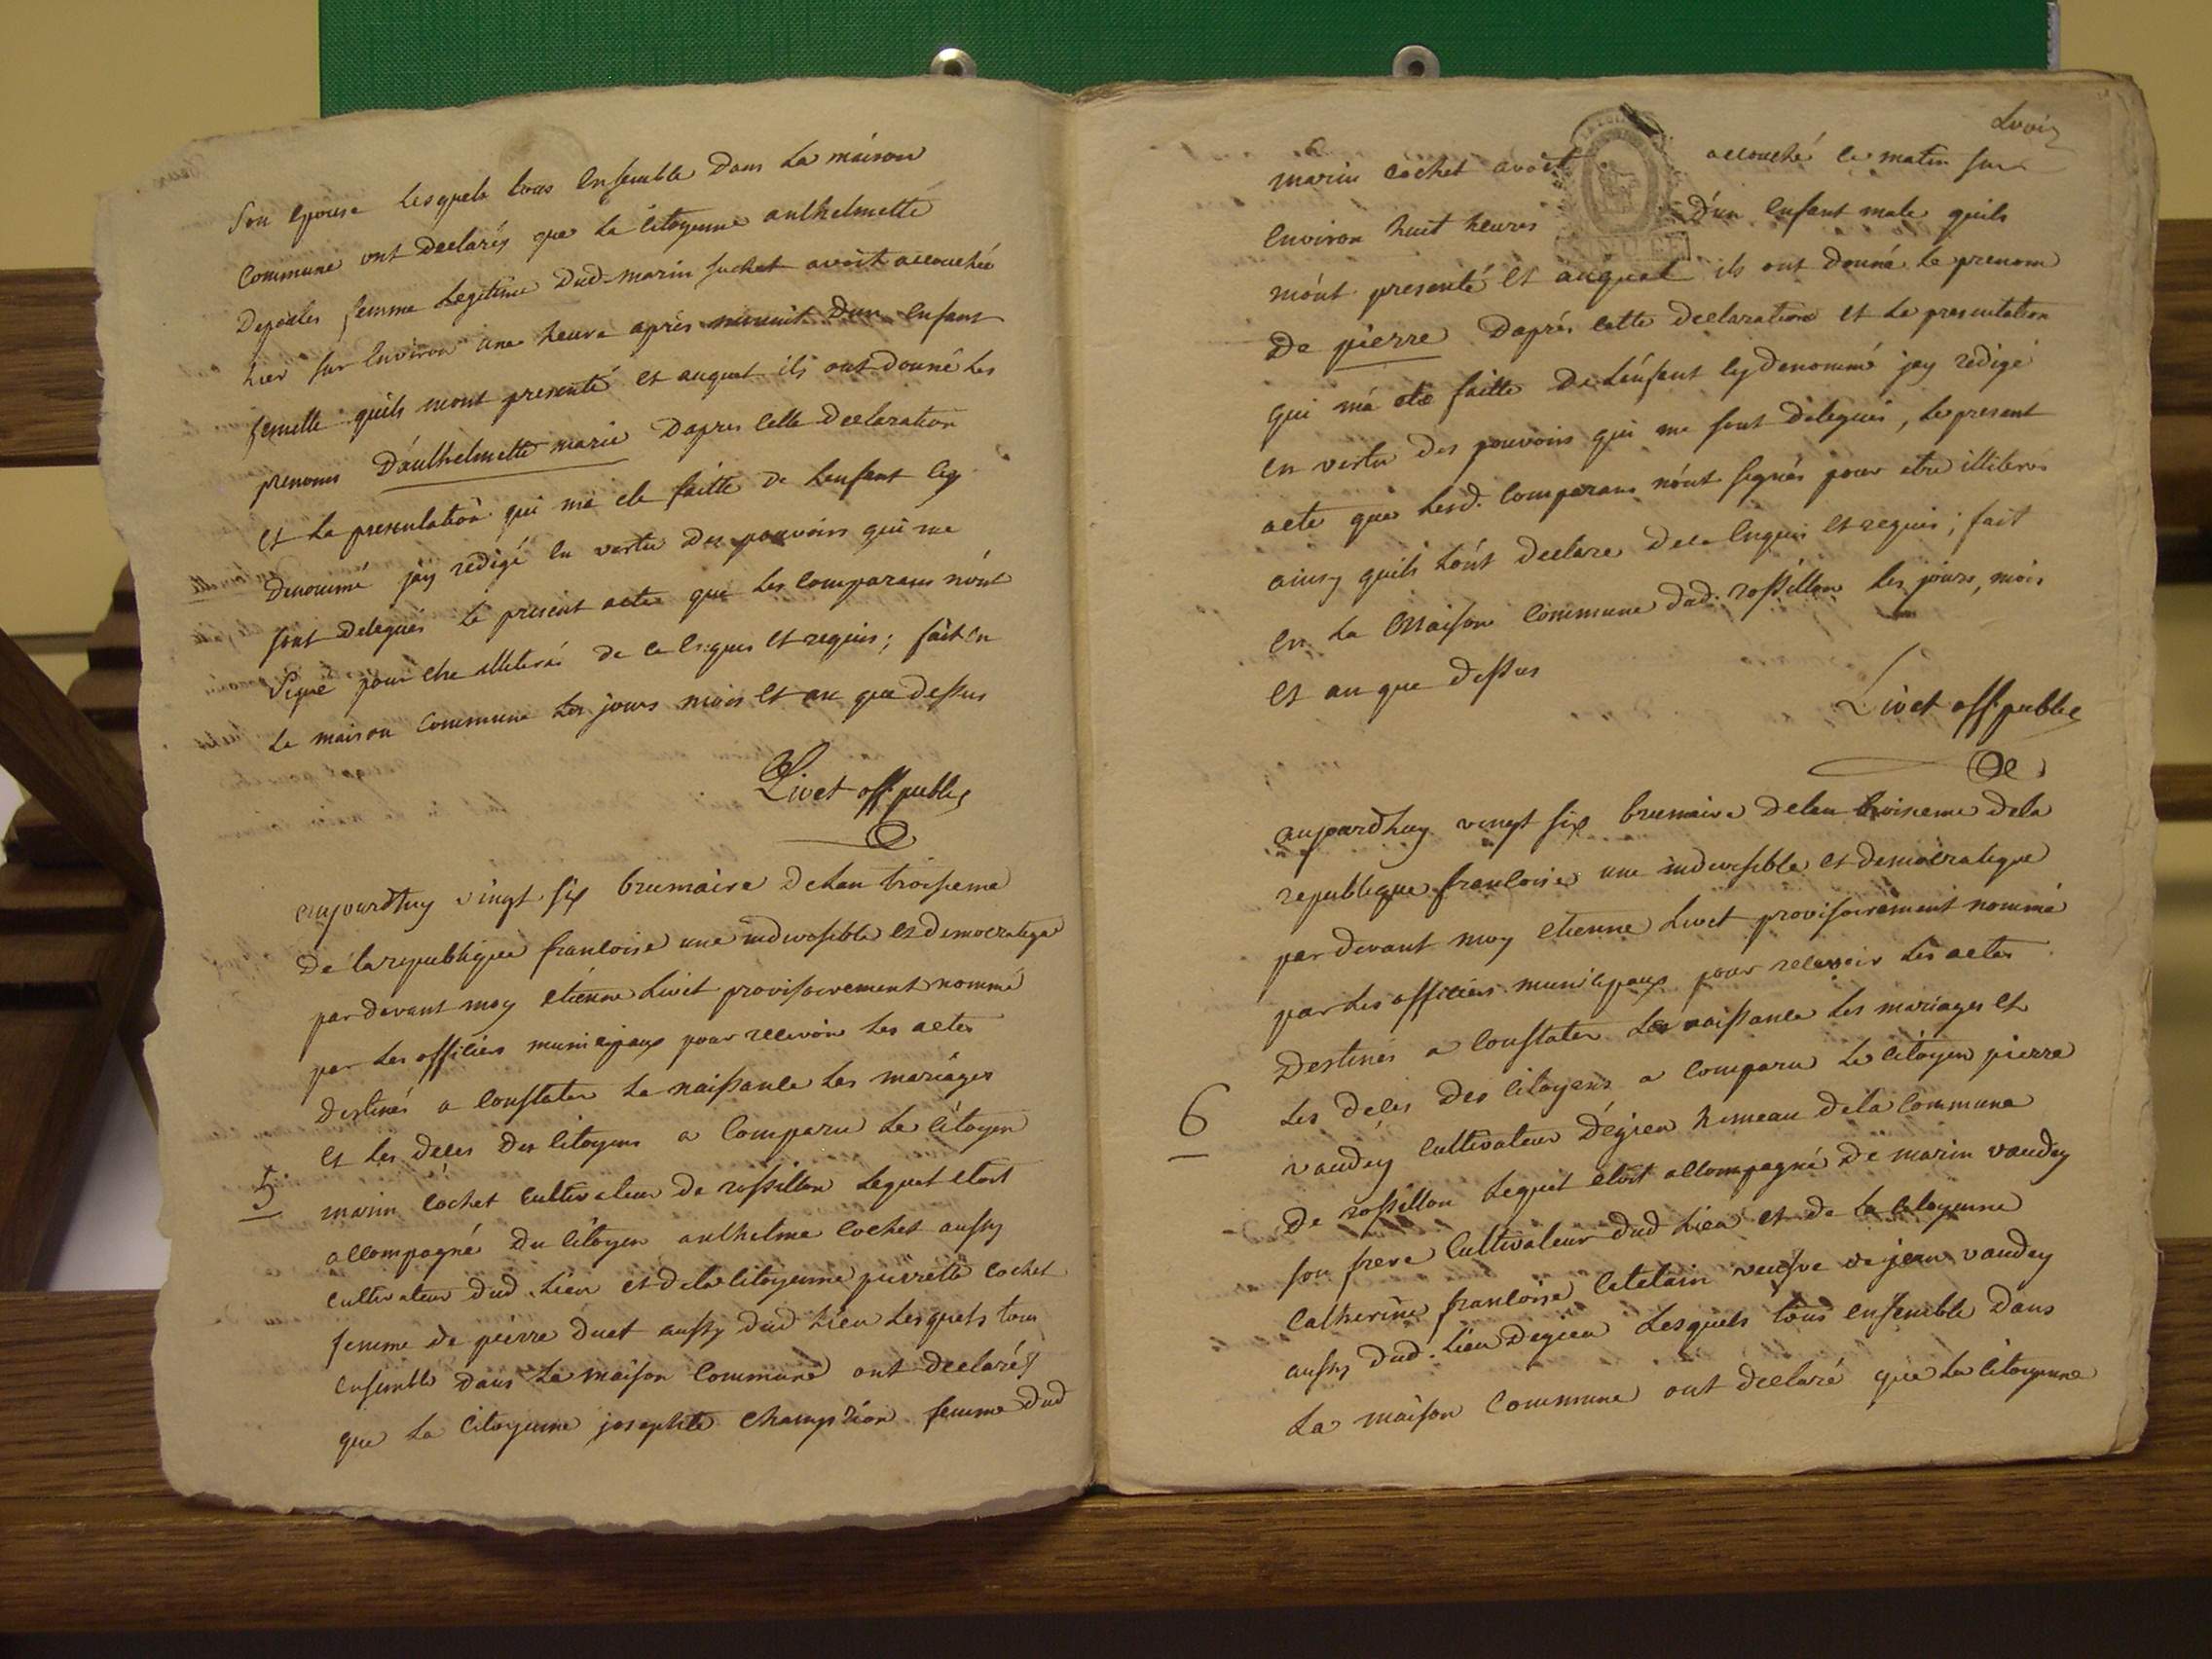 son epouse Lesquels tous ensemble dans La maison
Commune ont declarés que La Citoyenne anthelmette
femme Legitime dud. marin suchet avoit accouchée
hier sur Environ une heure aprés minuit d'un Enfant
femelle quils mont presenté et auquel ils ont donné Les
prenoms D'anthelmette marie Dapres Cette Declaration
et La presentation qui ma ete faitte de Lenfant Cy
denommé jay redigé en vertu des pouvoirs qui me
sont delegués Le present acte que Les Comparans nont
signé pour etre illiterés de ce Enquis et requis; fait en
La maison Commune Les jours mois et an que dessus
Livet off. public
aujourdhuy vingt six brumaire de Lan troisieme
de La republique francoise une indivisible et democratique
par devant moy etienne Livet provisoirement nommé
par Les officiers municipaux pour recevoir Les actes
destinés a Constater La naissance Les mariages
et Les deces des Citoyens a Comparu Le Citoyen
5 marin Cochet Cultivateur de rossillon Lequel etoit
accompagné du Citoyen anthelme Cochet aussy
cultivateur dud. Lieu et de La Citoyenne pierrette Cochet
femme de pierre duet aussy dud Lieu Lesquels tous
ensemble dans La maison Commune ont declarés
que La Citoyenne josephte Champion femme dud
marin Cochet avoit accouché ce matin sur
Environ huit heures d'un Enfant male quils
m'ont presenté et auquel ils ont donné Le prenom
De pierre Daprés Cette declaration et La presentation
qui ma ete faitte de Lenfant Cy denommé jay redigé
en vertu des pouvoirs qui me sont delegués, Le present
acte que Lesd. Comparans n'ont signés pour etre illiterés
ainsy quils L'ont declare de ce Enquis et requis; fait
en La Maison Commune dud. rossillon Les jours, mois
et an que dessus
Livet off. public
aujourdhuy vingt six brumaire de Lan troisieme de La
republique francoise une indivisible et democratique
par devant moy etienne Livet provisoirement nommé
par Les officiers municipaux pour recevoir Les actes
Destinés a Constater La naissance Les mariages et
Les deces des Citoyens a Comparu Le Citoyen pierre
6 vaudey Cultivateur D'egieu hameau de La Commune
de rossillon Lequel etoit accompagné de marin vaudey
son frere Cultivateur dud Lieu et de La Citoyenne
Catherine francoise veufve de jean vaudey
aussy dud. Lieu Degieu Lesquels tous ensemble dans
La maison Commune ont declaré que La Citoyenne